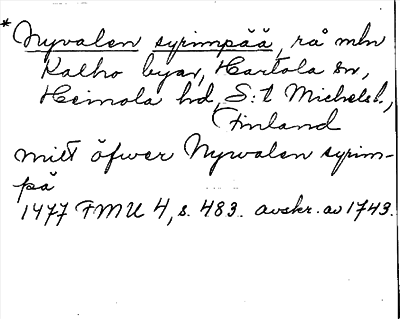 * Nyvalen syrimpää, rå mln
Kalho byar, Hartola sn,
Heinola hd, S:t Michels l.,
(Finland
mitt öfwer Nyvalen syrim-
pä
1477 FMU 4, s. 483. avskr. av 1743.